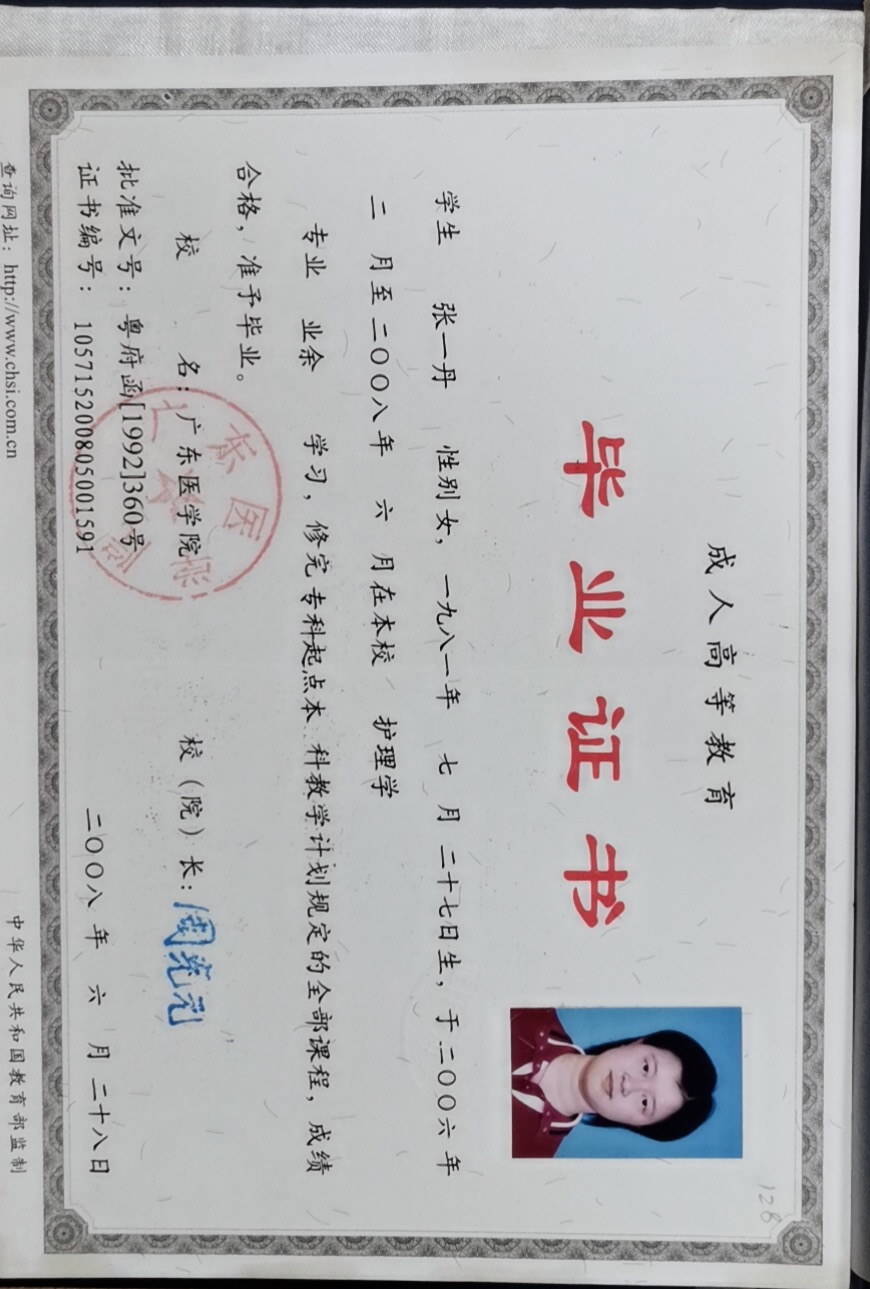 成人高等教育
毕业证书
128
学生 张一丹 性别女，一九八一年 七 月 二十七日生，于二〇〇六年
二 月至二〇〇八年 六 月在本校 护理学
专业 业余 学习，修完专科起点本 科教学计划规定的全部课程，成绩
合格，准予毕业。
校 名：广东医学院 校（院）长：周克元
批准文号：粤府函[1992]360号
证书编号：105715200805001591 二〇〇八 年 六 月 二十八日
查询网址：http://www.chsi.com.cn 中华人民共和国教育部监制